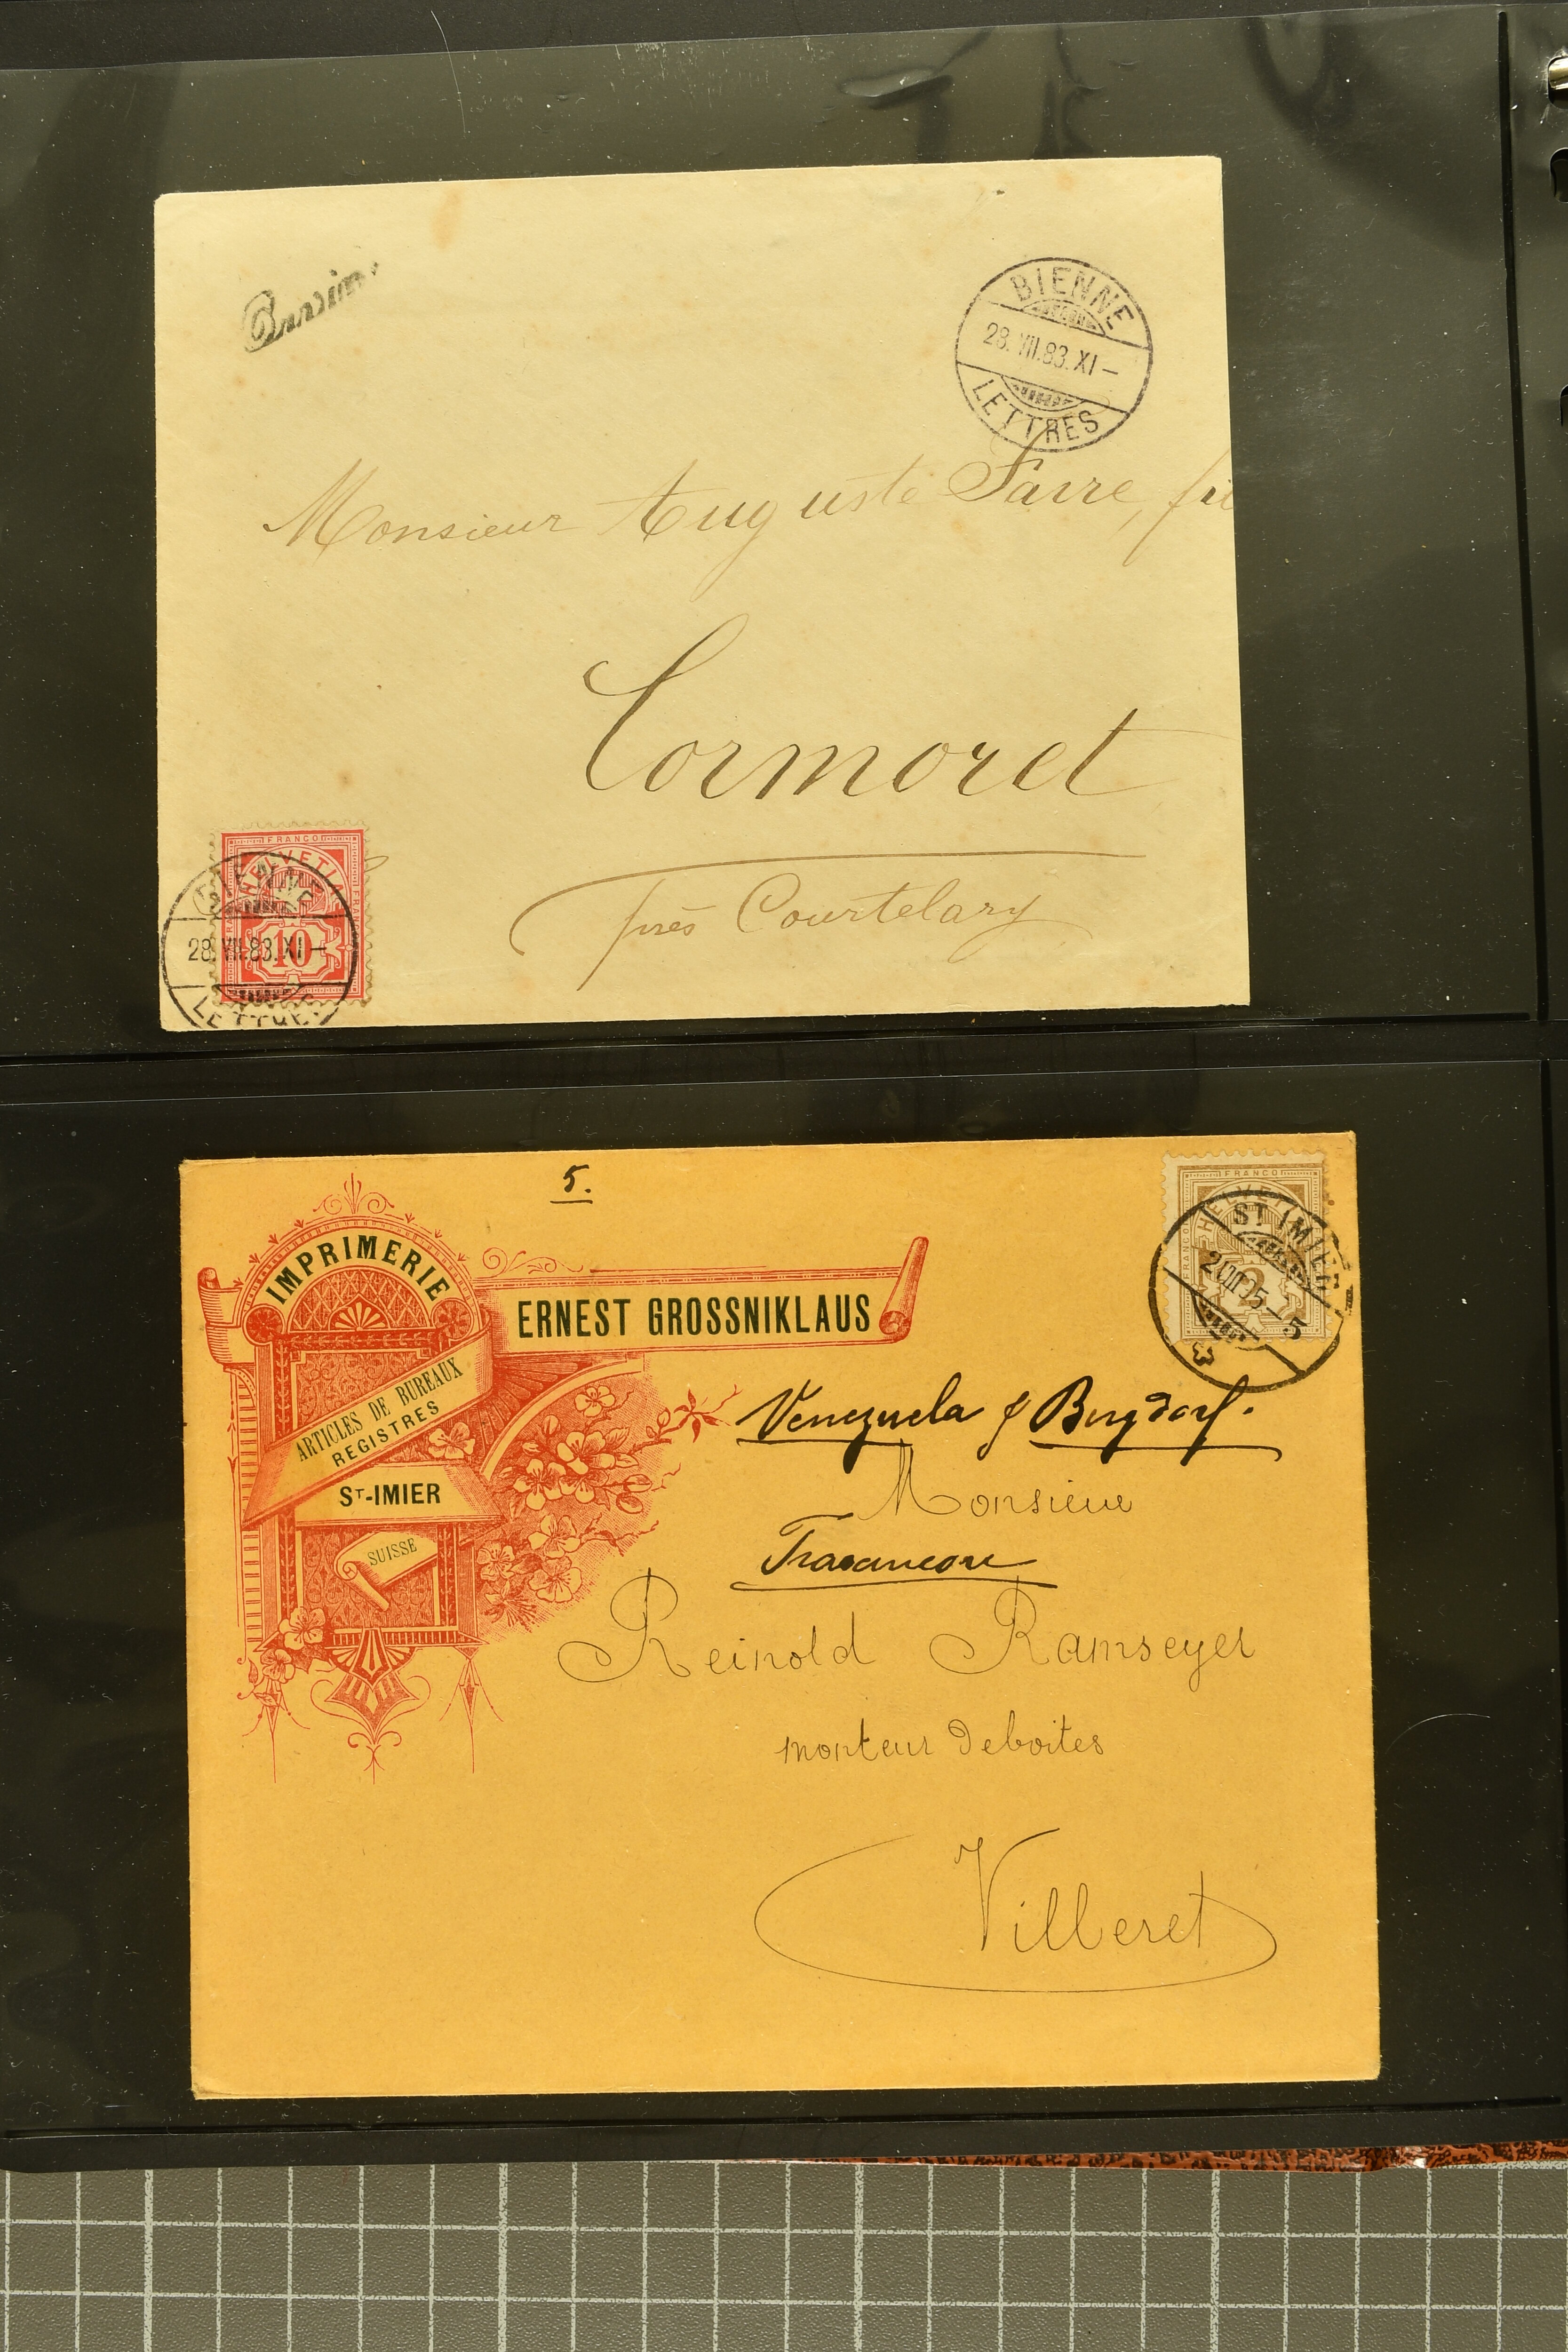 BIENNE
28.VII.83.XI–
LETTRES
Monsieur Auguste Favre, fil
Cormoret
près Courtelary
FRANCO
HELVETIA
10
28.VII.83.XI–
5.
IMPRIMERIE
ERNEST GROSSNIKLAUS
ARTICLES DE BUREAUX
REGISTRES
ST-IMIER
SUISSE
FRANCO
HELVETIA
2
ST IMIER
Venezuela & Burgdorf.
Monsieur
Travancore
Reinold Ramseyer
monteur de boites
Villeret